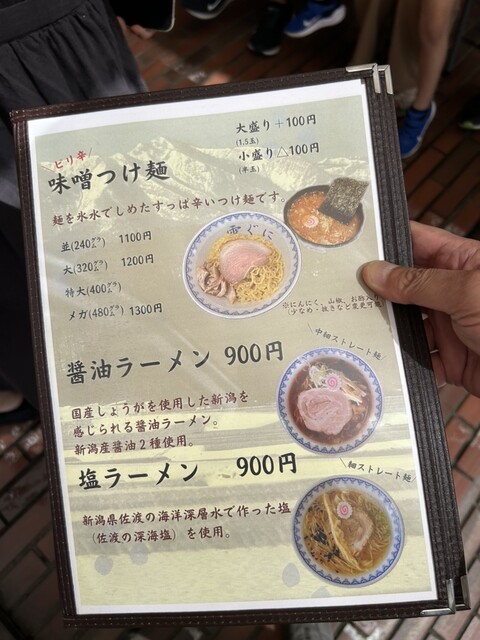 大盛り+100円
(1.5玉)
小盛り△100円
(半玉)
ピリ辛
味噌つけ麺
麺を氷水でしめたすっぱ辛いつけ麺です。
並(240㌘) 1100円
大(320㌘) 1200円
特大(400㌘)
メガ(480㌘) 1300円
雪ぐに
※にんにく、山椒、お酢入り
(少なめ・抜きなど変更可能
醤油ラーメン 900円
中細ストレート麺
国産しょうがを使用した新潟を
感じられる醤油ラーメン。
新潟産醤油2種使用。
塩ラーメン 900円
細ストレート麺
新潟県佐渡の海洋深層水で作った塩
(佐渡の深海塩)を使用。